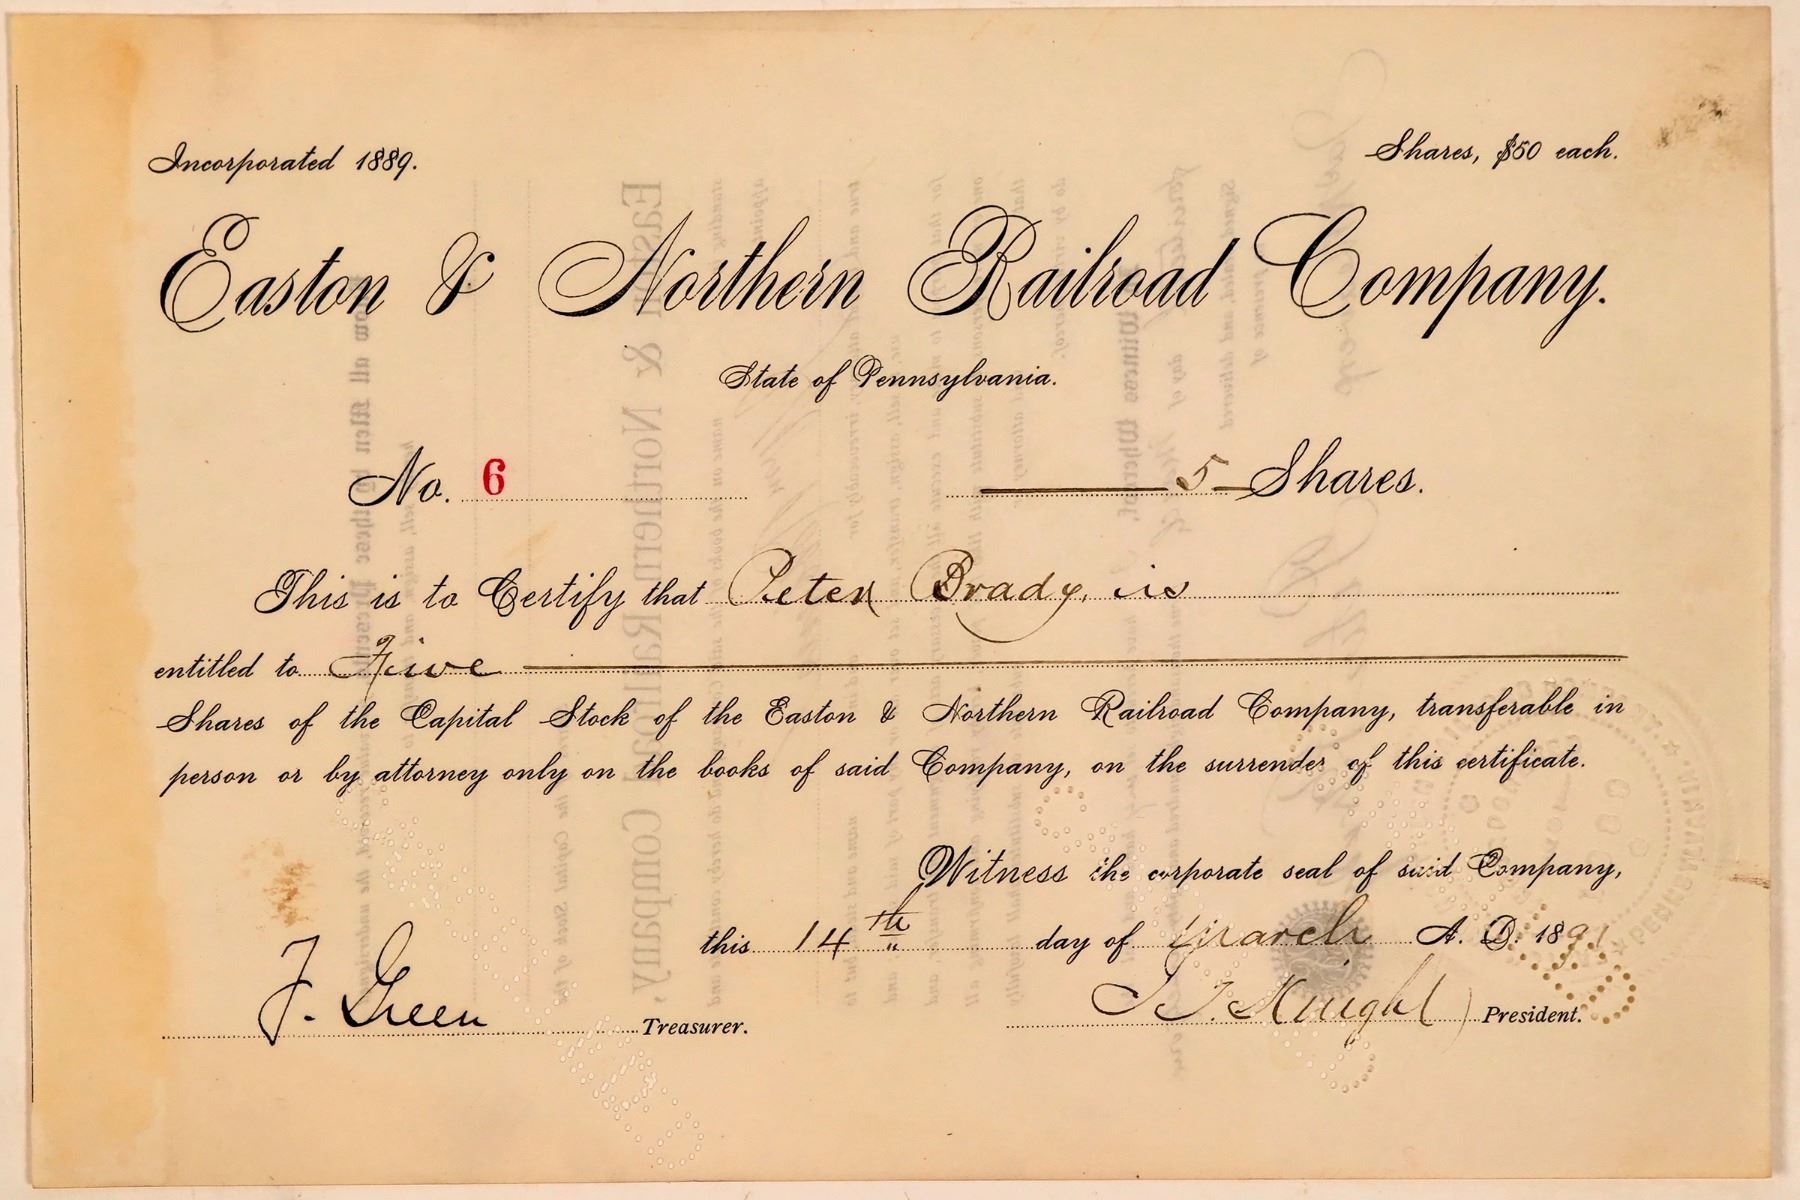 Incorporated 1889.
Shares, $50 each.
Easton & Northern Railroad Company.
State of Pennsylvania.
No. 6
5 Shares.
This is to Certify that Peter Brady, is
entitled to Five
Shares of the Capital Stock of the Easton & Northern Railroad Company, transferable in
person or by attorney only on the books of said Company, on the surrender of this certificate.
Witness the corporate seal of said Company,
this 14th day of March A. D. 1891
F. Green Treasurer.
Knight President.